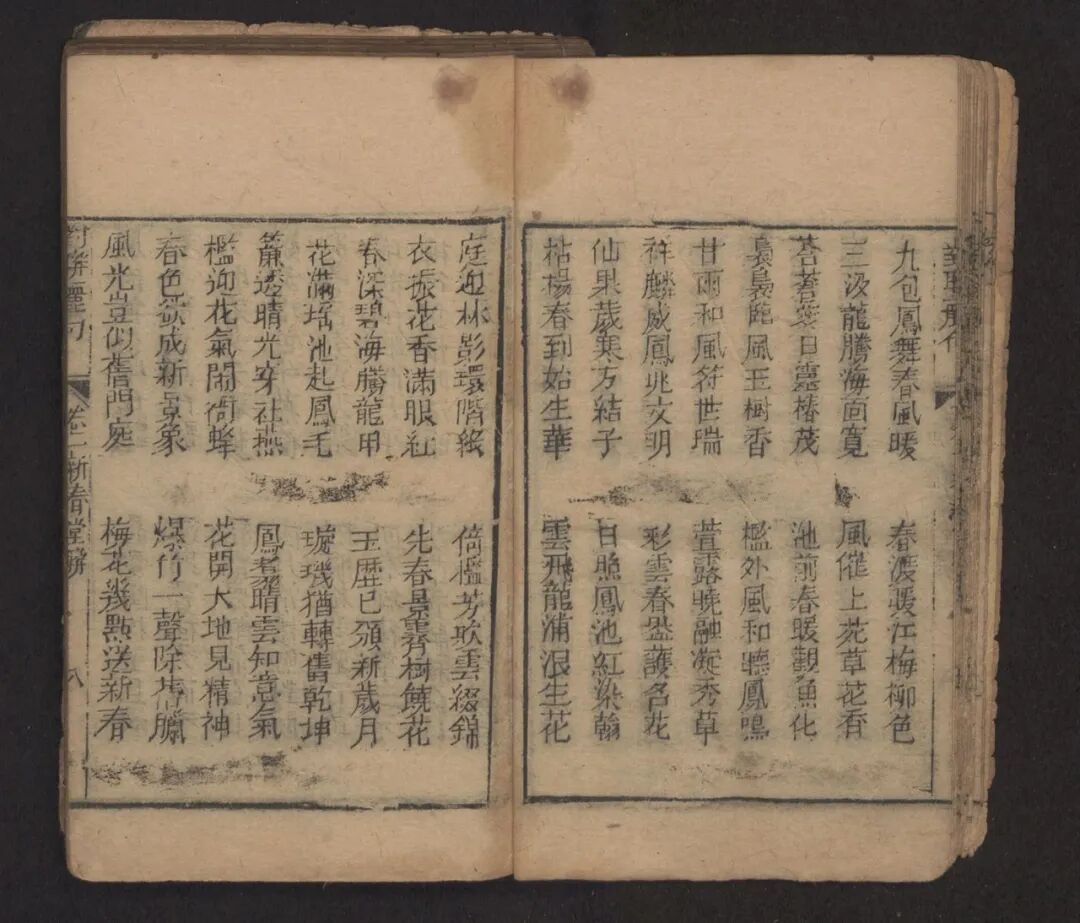 九包鳳舞春風暖
三汲龍騰海面寬
蒼蒼愛日靈椿茂
裊裊飽風玉樹香
甘雨和風符世瑞
祥麟威鳳兆文明
仙果歲寒方結子
枯楊春到始生華
春渡暖江梅柳色
風催上苑草花香
池前春暖觀魚化
檻外風和聽鳳鳴
萱露曉融凝秀草
彩雲春盎護名花
日照鳳池紅染翰
雲飛龍浦浪生花
庭迎林影環階綠
衣振花香滿眼紅
春深碧海騰龍甲
花滿瑤池起鳳毛
簾透晴光穿社燕
檻迎花氣鬧衙蜂
春色欲成新景象
風光豈似舊門庭
倚檻芳欣雲綴錦
先春景樹饒花
玉歷已頒新歲月
璇璣猶轉舊乾坤
鳳翥晴雲知意氣
花開大地見精神
爆竹一聲除舊臘
梅花幾點送新春
卷二新春堂聯 八